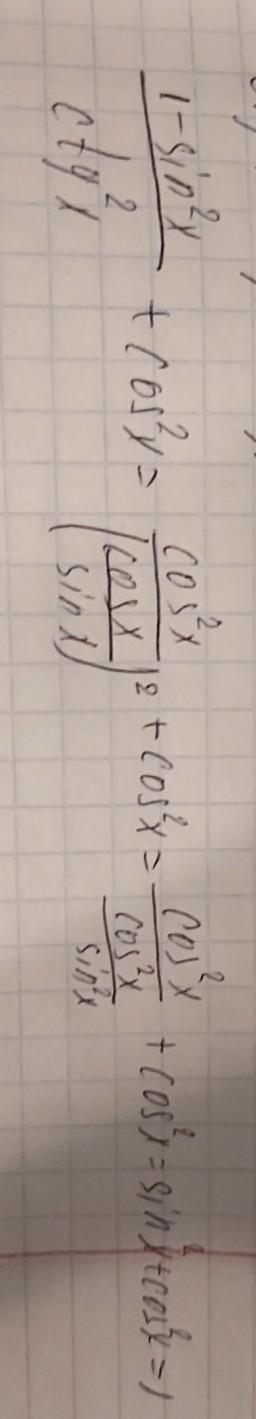 (1-sin²x)/(ctg²x) + cos²x = cos²x/(cosx/sinx)² + cos²x = cos²x/(cos²x/sin²x) + cos²x = sin²x+cos²x = 1